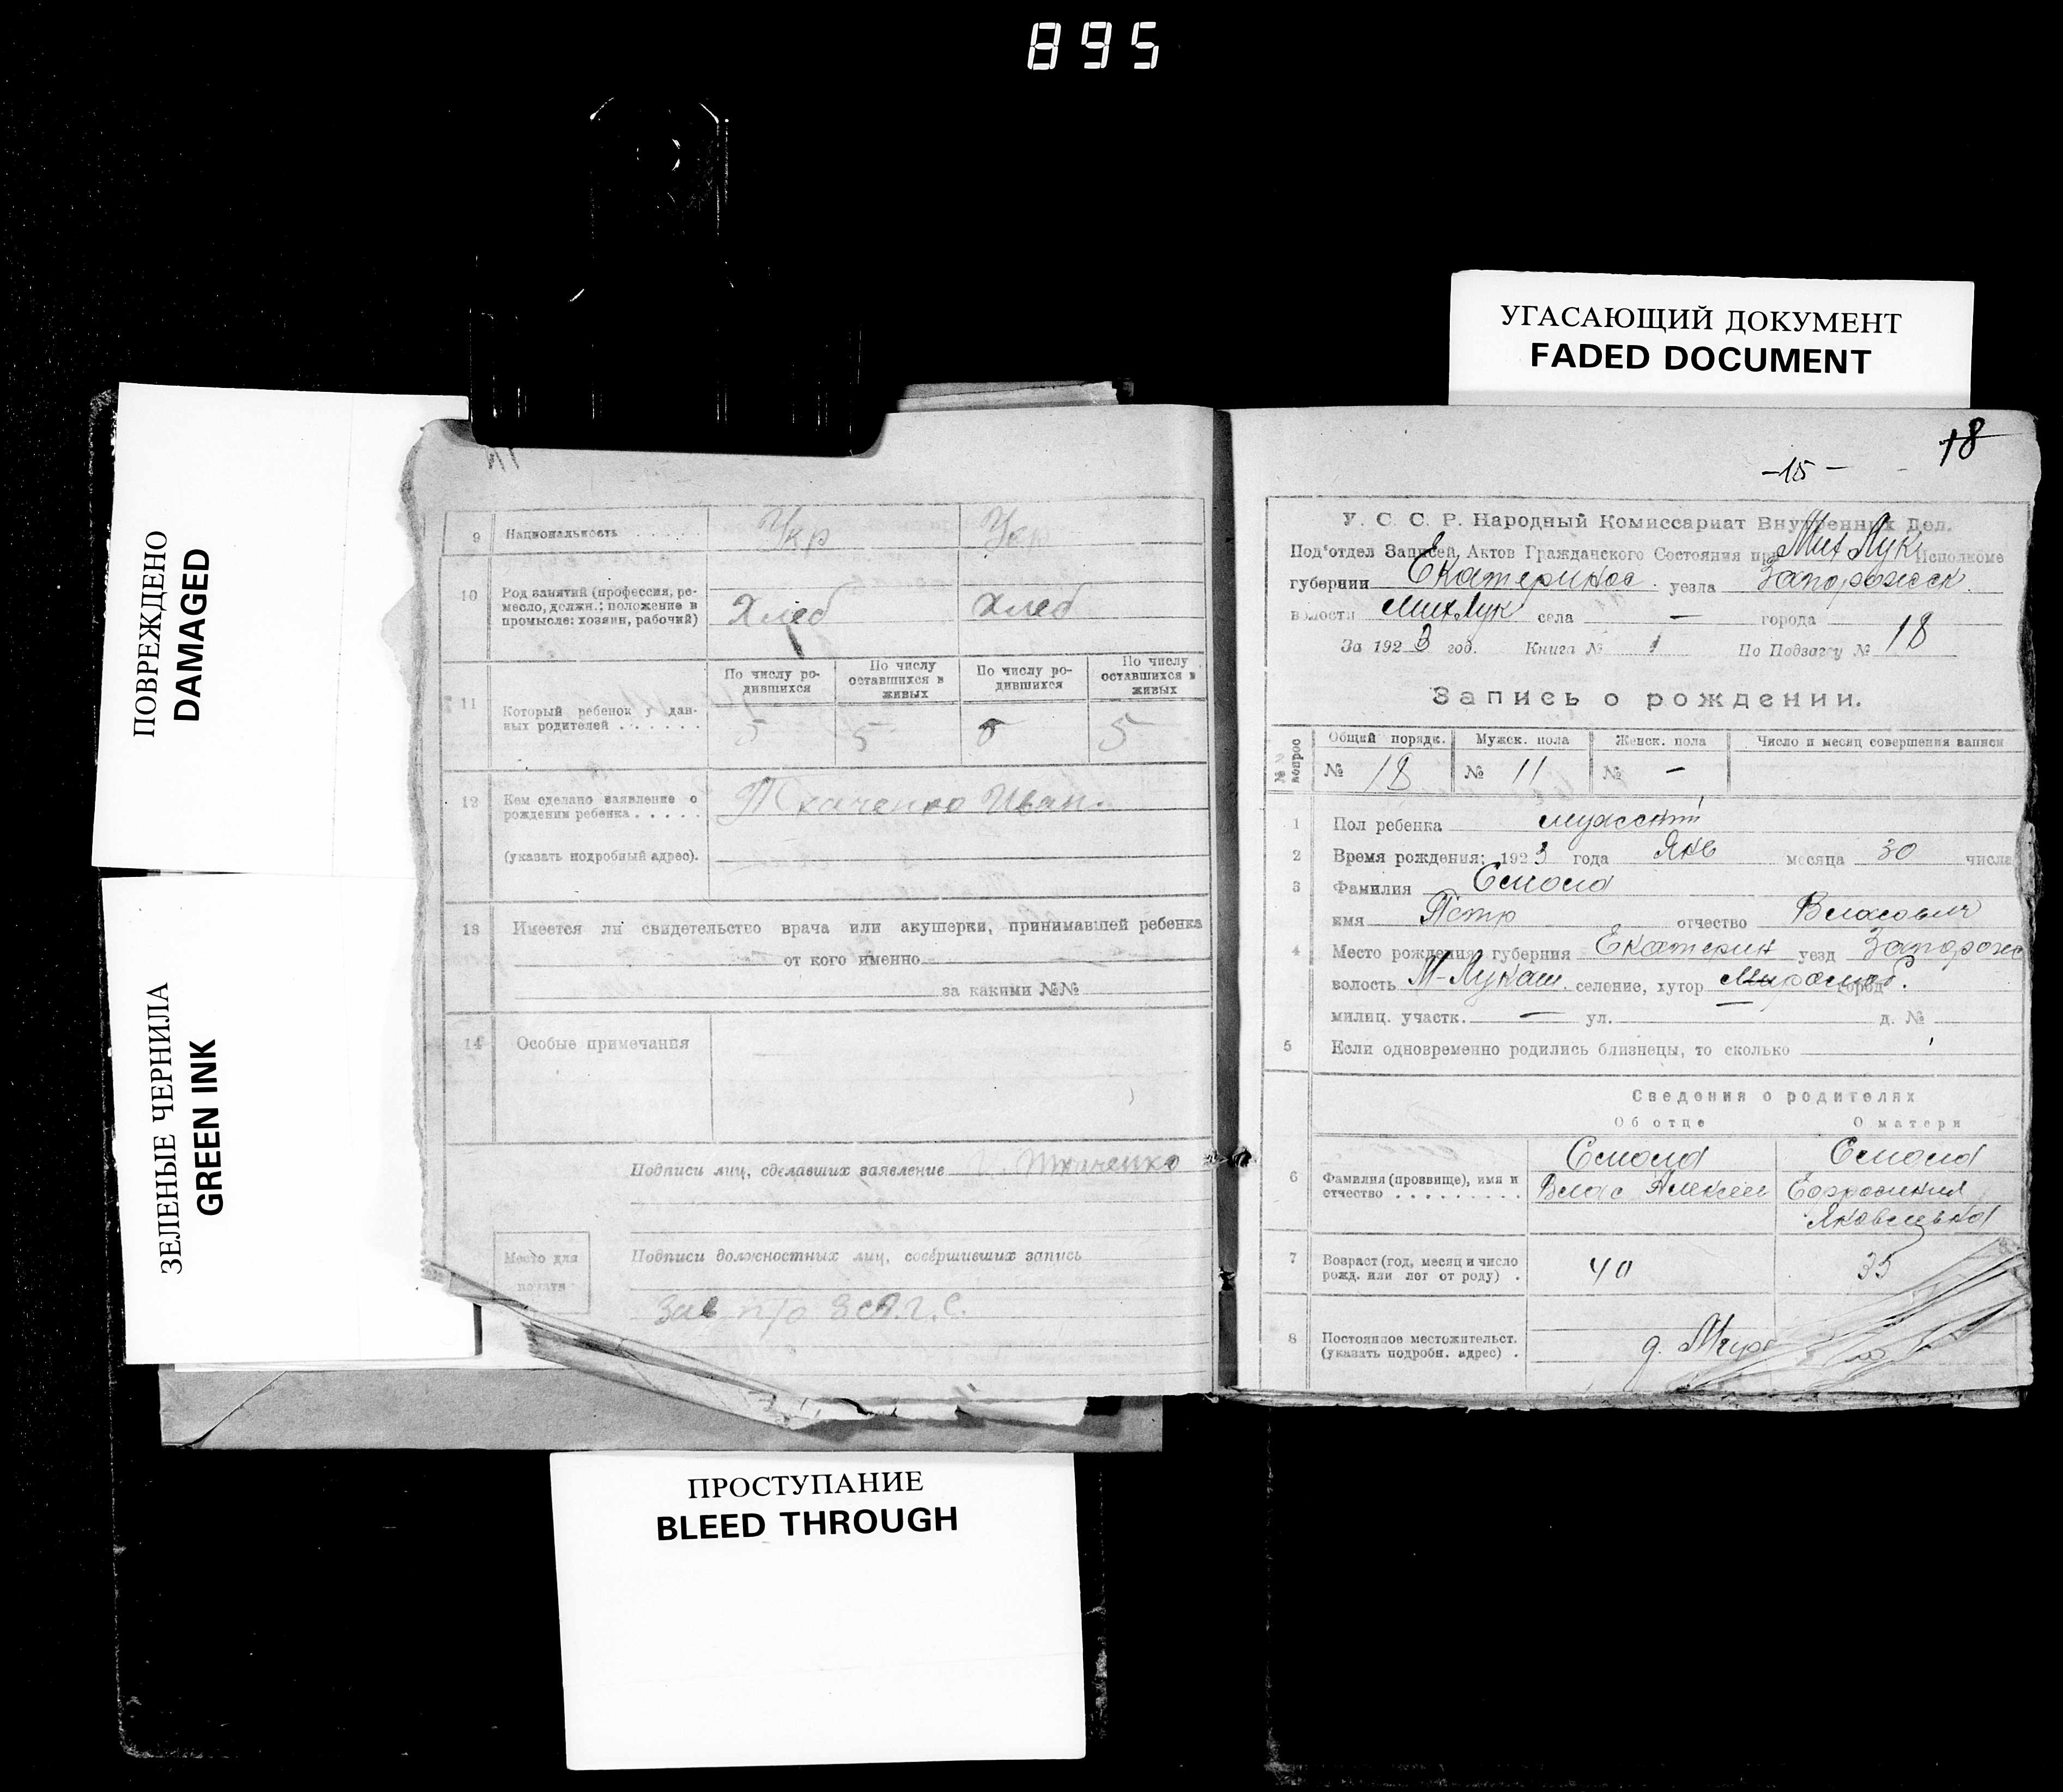 895
УГАСАЮЩИЙ ДОКУМЕНТ
FADED DOCUMENT
ПОВРЕЖДЕНО
DAMAGED
ЗЕЛЕНЫЕ ЧЕРНИЛА
GREEN INK
9 Национальность Укр Укр
10 Род занятий (профессия, ре-
месло, должн.; положение в
промысле: хозяин, рабочий) Хлеб Хлеб
По числу ро- По числу По числу ро- По числу
дившихся оставшихся в дившихся оставшихся в
живых живых
11 Который ребенок у дан-
ных родителей 5 5 5 5
12 Кем сделано заявление о
рождении ребенка Ткаченко Иван.
(указать подробный адрес).
13 Имеется ли свидетельство врача или акушерки, принимавшей ребенка
от кого именно
за какими №№
14 Особые примечания
Подписи лиц, сделавших заявление Ткаченко
Место для Подписи должностных лиц, совершивших запись
печати
Зав п/о ЗАГС.
18
-15-
У. С. С. Р. Народный Комиссариат Внутренних Дел.
Под'отдел Записей Актов Гражданского Состояния при Мих Лук Исполкоме
губернии Екатеринос. уезда Запорожск.
волости МихЛук села — города
За 1923 год. Книга № 1 По Подзагсу № 18
Запись о рождении.
№№ вопрос Общий порядк. Мужск. пола Женск. пола Число и месяц совершения записи
№ 18 № 11 № -
1 Пол ребенка мужской
2 Время рождения: 1923 года Янв месяца 30 числа
3 Фамилия
имя Петр отчество Власович
4 Место рождения губерния Екатерин уезд Запорож
волость М-Лукаш. селение, хутор город
милиц. участк. — ул. — д. №
5 Если одновременно родились близнецы, то сколько
Сведения о родителях
Об отце О матери
6 Фамилия (прозвище), имя и
отчество Влас Алексеев Ефросиния
Яковлевна
7 Возраст (год, месяц и число
рожд. или лет от роду) . 40 35
8 Постоянное местожительст.
(указать подробн. адрес) . д.
ПРОСТУПАНИЕ
BLEED THROUGH